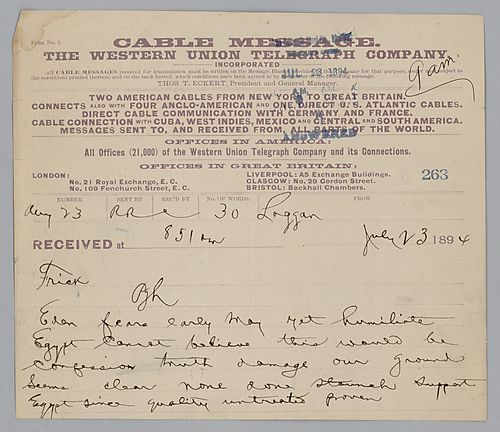 CABLE MESSAGE.
THE WESTERN UNION TELEGRAPH COMPANY,
INCORPORATED
All CABLE MESSAGES received for transmission must be written on the Message Blank
THOS T. ECKERT, President and General Manager.
JUL 23 1894
P am
TWO AMERICAN CABLES FROM NEW YORK TO GREAT BRITAIN.
CONNECTS ALSO WITH FOUR ANGLO-AMERICAN AND ONE DIRECT U.S. ATLANTIC CABLES.
DIRECT CABLE COMMUNICATION WITH GERMANY AND FRANCE.
CABLE CONNECTION WITH CUBA, WEST INDIES, MEXICO AND CENTRAL AND SOUTH AMERICA.
MESSAGES SENT TO, AND RECEIVED FROM, ALL PARTS OF THE WORLD.
ANSWERED
OFFICES IN AMERICA:
All Offices (21,000) of the Western Union Telegraph Company and its Connections.
OFFICES IN GREAT BRITAIN:
LONDON:
No. 21 Royal Exchange, E. C.
No. 109 Fenchurch Street, E. C.
LIVERPOOL: A5 Exchange Buildings.
GLASGOW: No. 29 Gordon Street.
BRISTOL: Backhall Chambers.
263
NUMBER SENT BY REC'D BY No. OF WORDS. FROM
23 30 Loggan
RECEIVED at 851 am July 23 1894
Frick
Pgh
Eden fears early may yet humiliate
Egypt cannot believe this would be
confession truth damage our ground
Seems clear none done staunch support
Egypt since quality untreated proven